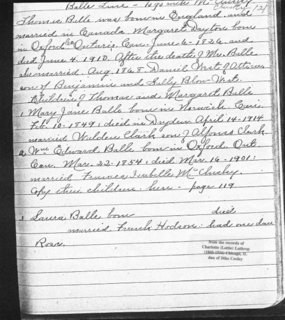 Balls Line -
Thomas Balls was born in England and
married in Canada Margaret Dayton born
in Oxford Co Ontario Can. June 6-1826 and
died June 4. 1910. After the death of Mr. Balls
she married Aug. 1868. Daniel West of
son of Benjamin and Polly West.
Children of Thomas and Margaret Balls
1. Mary Jane Balls born in Norwich Ont
Feb. 10. 1849: died in Dryden April 14-1914
married Wilden Clark son of Alfonso Clark
2. Wm Edward Balls born in Oxford Ont
Can. Mar. 22-1854: died Mar. 16-1901:
married Frances Isabelle
Copy their children here - page 119
3 Laura Balls born died
married Frank Hodson - had one dau
Rose.
From the records of
Charlotte